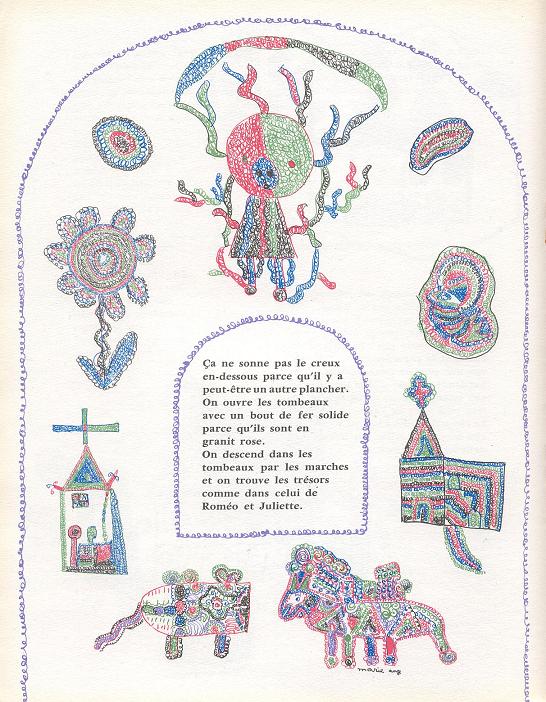 Ça ne sonne pas le creux
en-dessous parce qu'il y a
peut-être un autre plancher.
On ouvre les tombeaux
avec un bout de fer solide
parce qu'ils sont en
granit rose.
On descend dans les
tombeaux par les marches
et on trouve les trésors
comme dans celui de
Roméo et Juliette.
marie